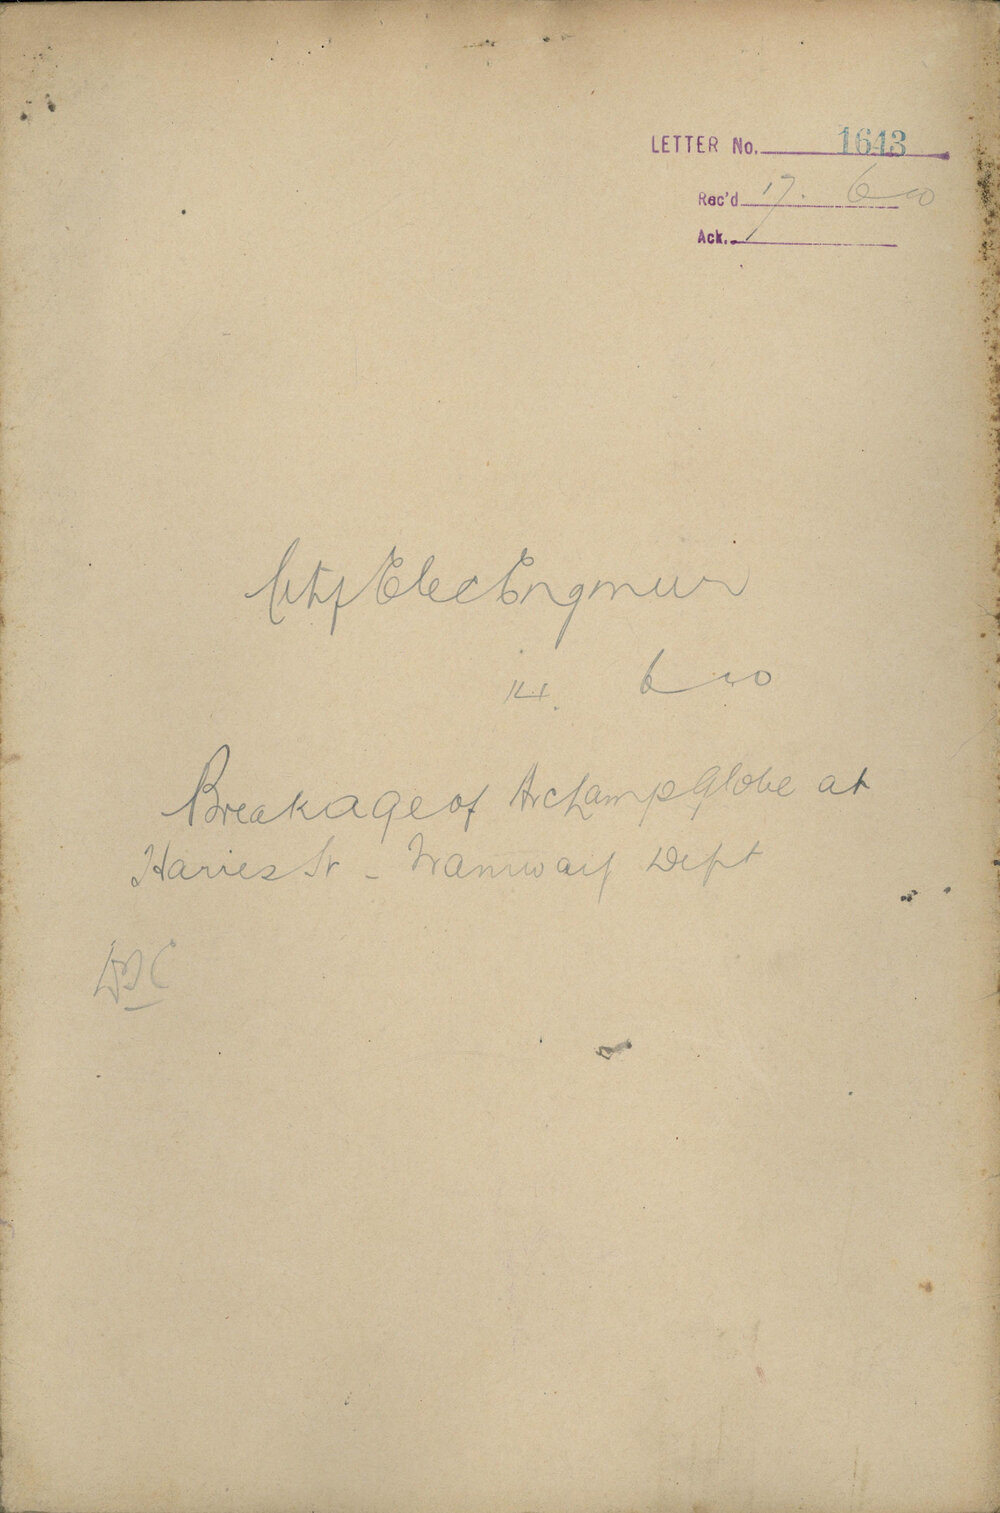 LETTER No. 1643
Rec'd 17. 6 10
Ack.
City Elec Engineer
14. 6 10
Breakage of Arc Lamp Globe at
Harris St - Tramway Dept